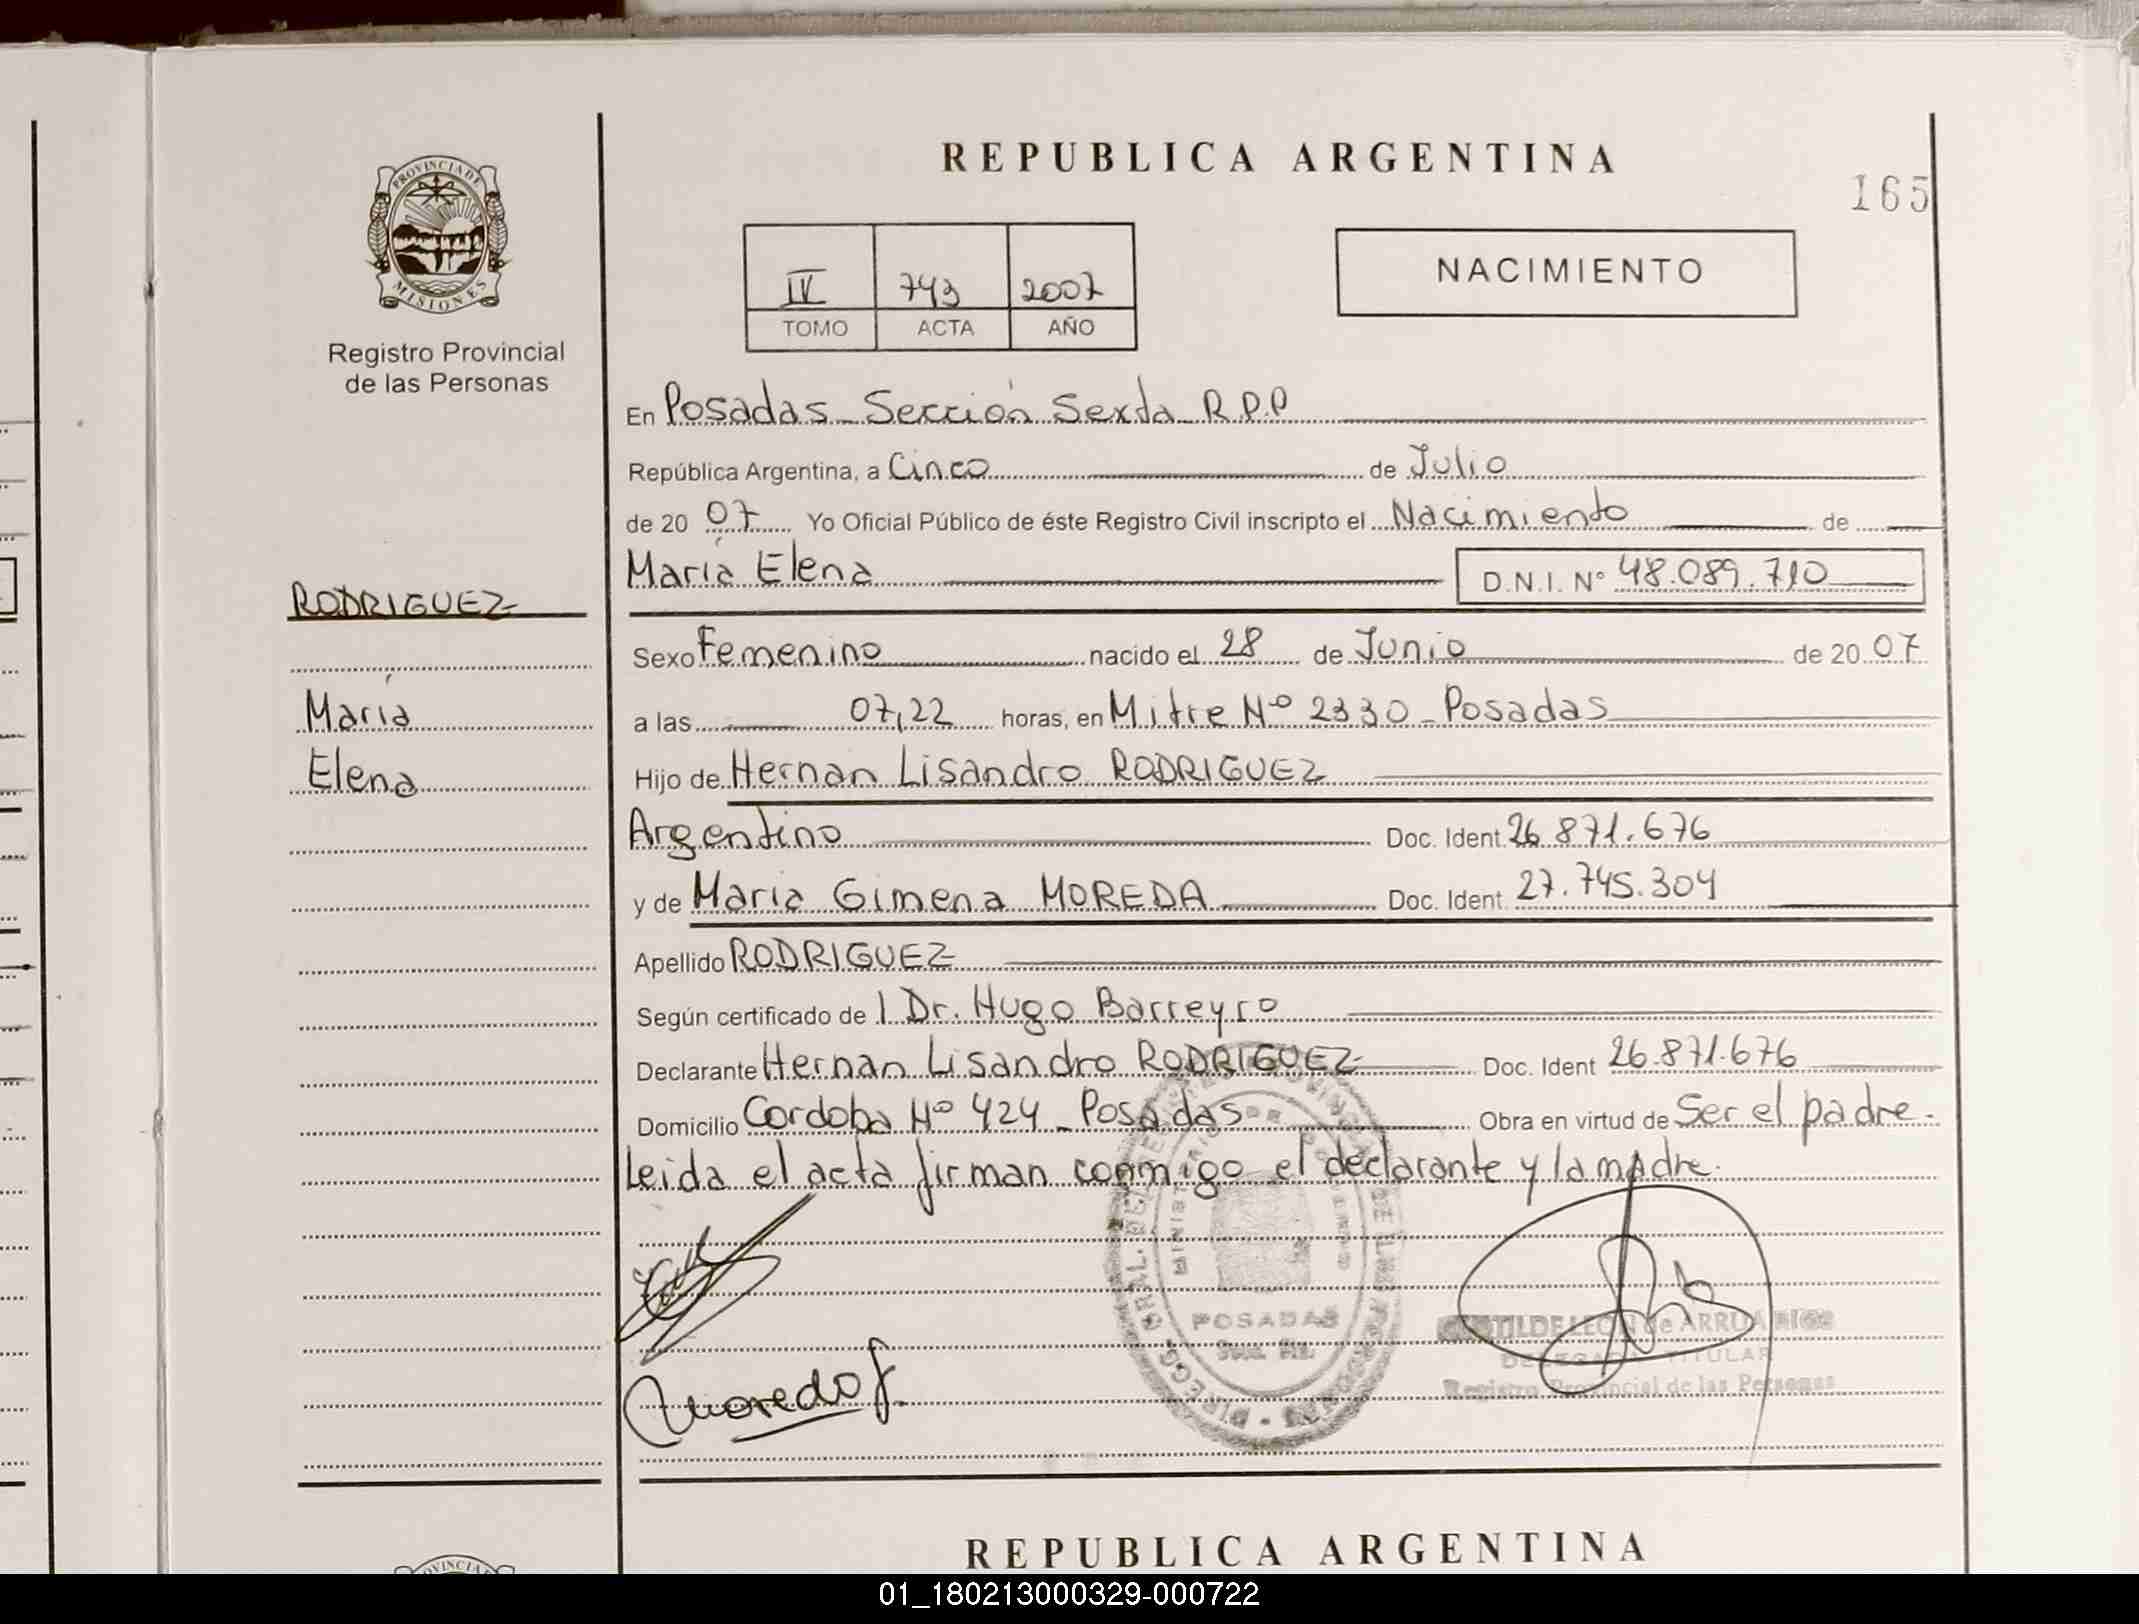 REPUBLICA ARGENTINA
165
PROVINCIA DE
MISIONES
Registro Provincial
de las Personas
IV 743 2007
TOMO ACTA AÑO
NACIMIENTO
En Posadas - Sección Sexta R.P.P
República Argentina, a Cinco de Julio
de 20 07 Yo Oficial Público de éste Registro Civil inscripto el Nacimiento de
María Elena D.N.I. N° 48.089.710
RODRIGUEZ
María
Elena
Sexo Femenino nacido el 28 de Junio de 20 07
a las 07,22 horas, en Mitre Nº 2330 - Posadas
Hijo de Hernan Lisandro RODRIGUEZ
Argentino Doc. Ident. 26.871.676
y de Maria Gimena MOREDA Doc. Ident. 27.745.304
Apellido RODRIGUEZ
Según certificado de l Dr. Hugo Barreyro
Declarante Hernan Lisandro RODRIGUEZ Doc. Ident 26.871.676
Domicilio Cordoba Nº 424 - Posadas Obra en virtud de Ser el padre.
Leida el acta firman conmigo el declarante y la madre.
POSADAS
LEON de ARRUA
DELEGADA TITULAR
Registro Provincial de las Personas
REPUBLICA ARGENTINA
01_180213000329-000722